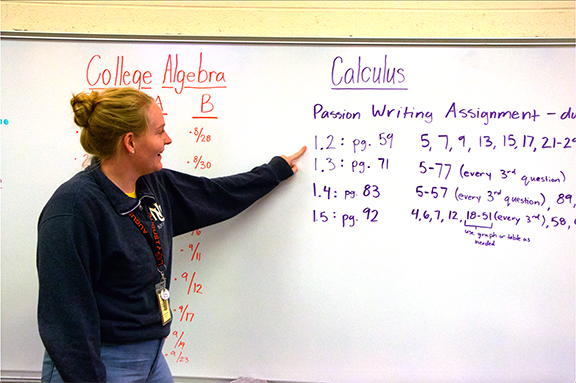 College Algebra
A B
8/28
8/30
9/11
9/12
9/17
9/19
9/23
Calculus
Passion Writing Assignment - du
1.2: pg. 59 5, 7, 9, 13, 15, 17, 21-2
1.3: pg. 71 5-77 (every 3rd question)
1.4: pg. 83 5-57 (every 3rd question), 89,
1.5: pg. 92 4, 6, 7, 12, 18-51 (every 3rd), 58, 6
use graph or table as
needed